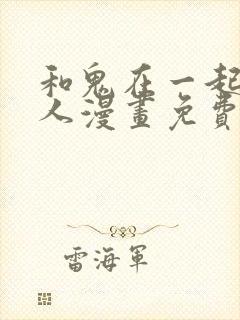 和鬼在一起
人漫畫免費
雷海軍